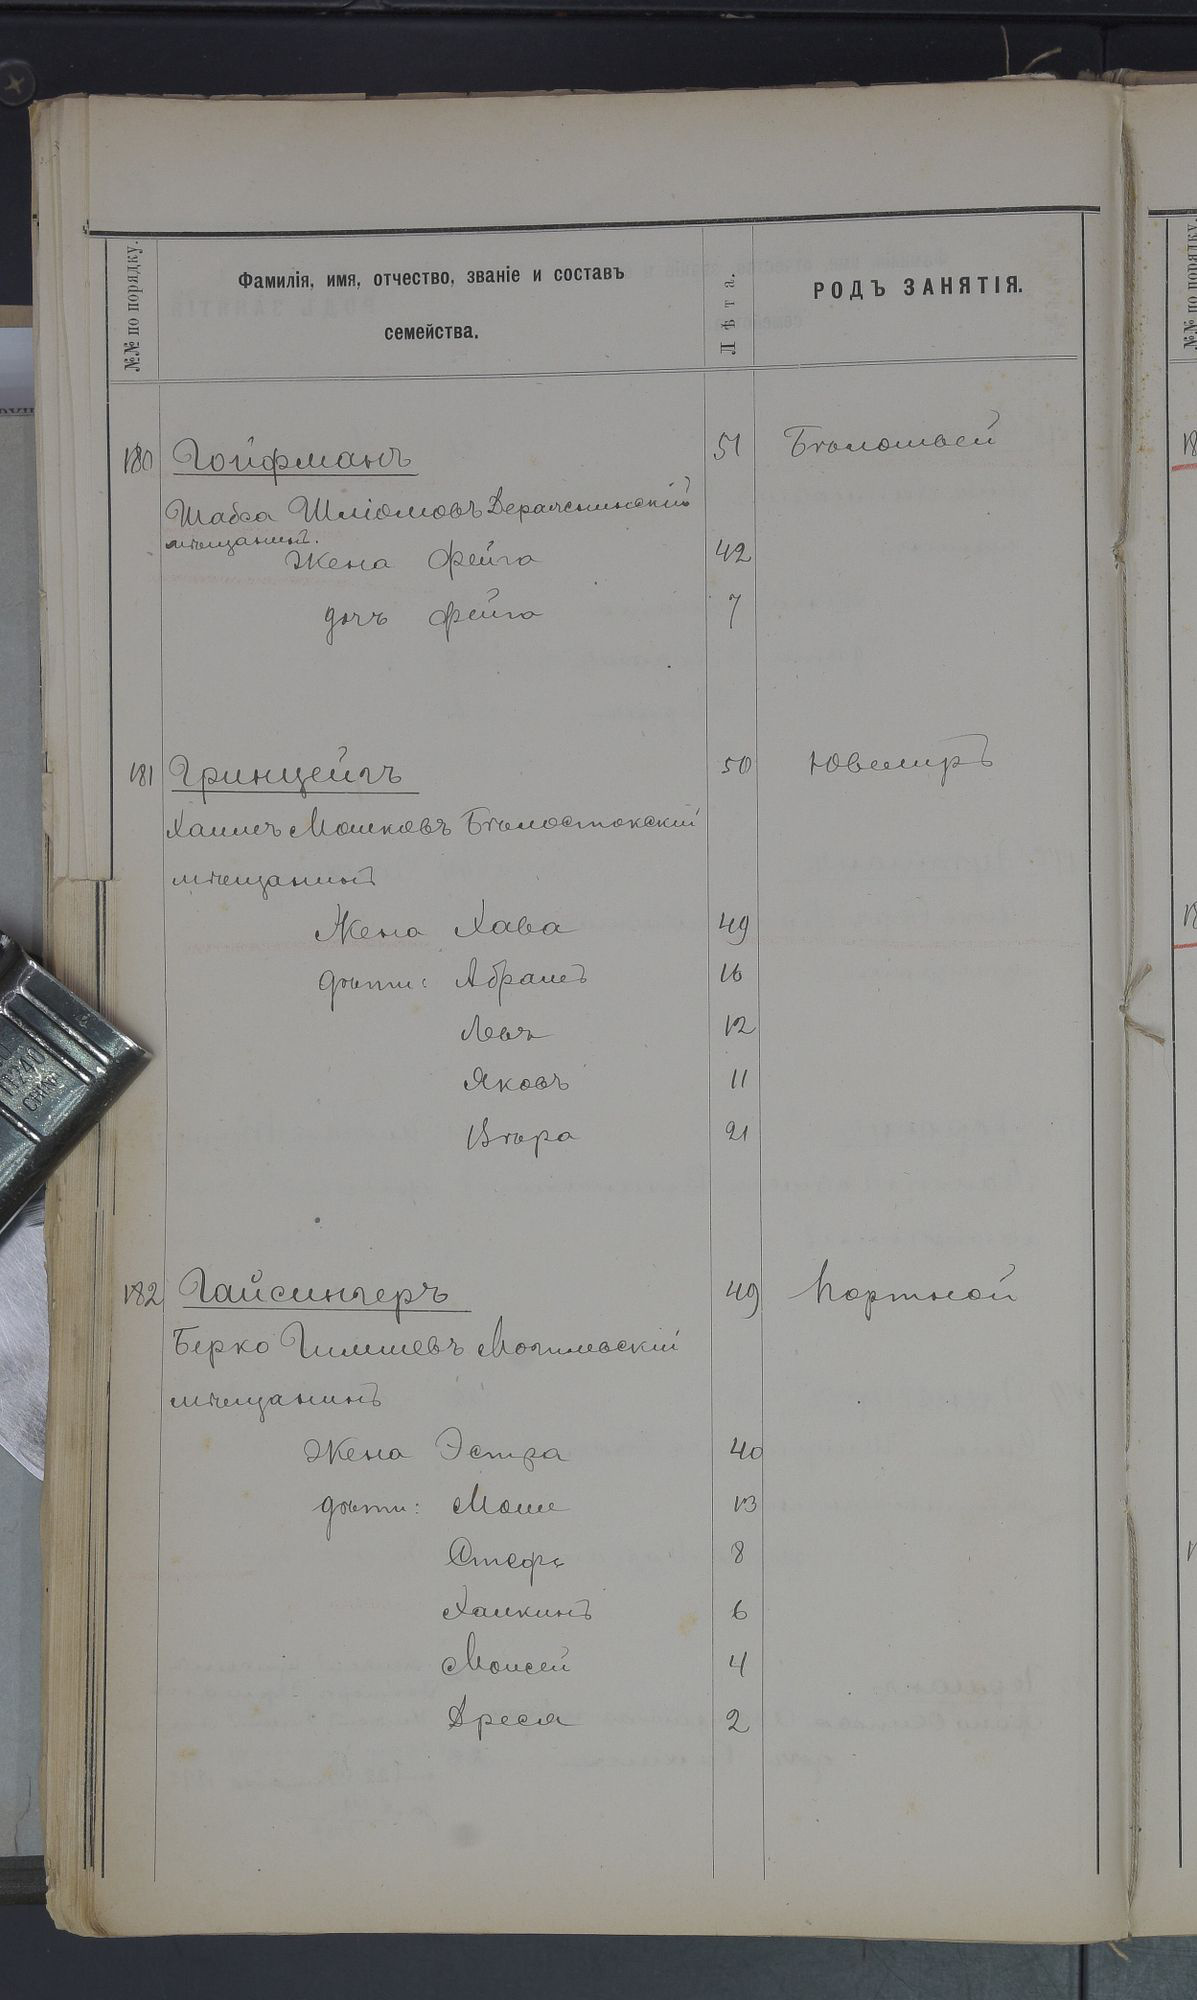 №№ по порядку.
Фамилія, имя, отчество, званіе и составъ
семейства.
Лѣта.
РОДЪ ЗАНЯТІЯ.
180 Гойфманъ 51 Бѣлошвей
Шабса Шліомовъ Деражнинскій
мѣщанинъ.
Жена Фейга 42
дочь Фейга 7
181 Гринцейгъ 50 Ювелиръ
Хаимъ Мошковъ Бѣлостокскій
мѣщанинъ
Жена Хава 49
дѣти: Абрамъ 16
Левъ 12
Яковъ 11
Вѣра 21
182 Гайсингеръ 49 Портной
Берко Гимшевъ Могилевскій
мѣщанинъ
Жена Эстра 40
дѣти: Моше 13
8
Хаикинъ 6
Моисей 4
Дреся 2
№№ по порядку.